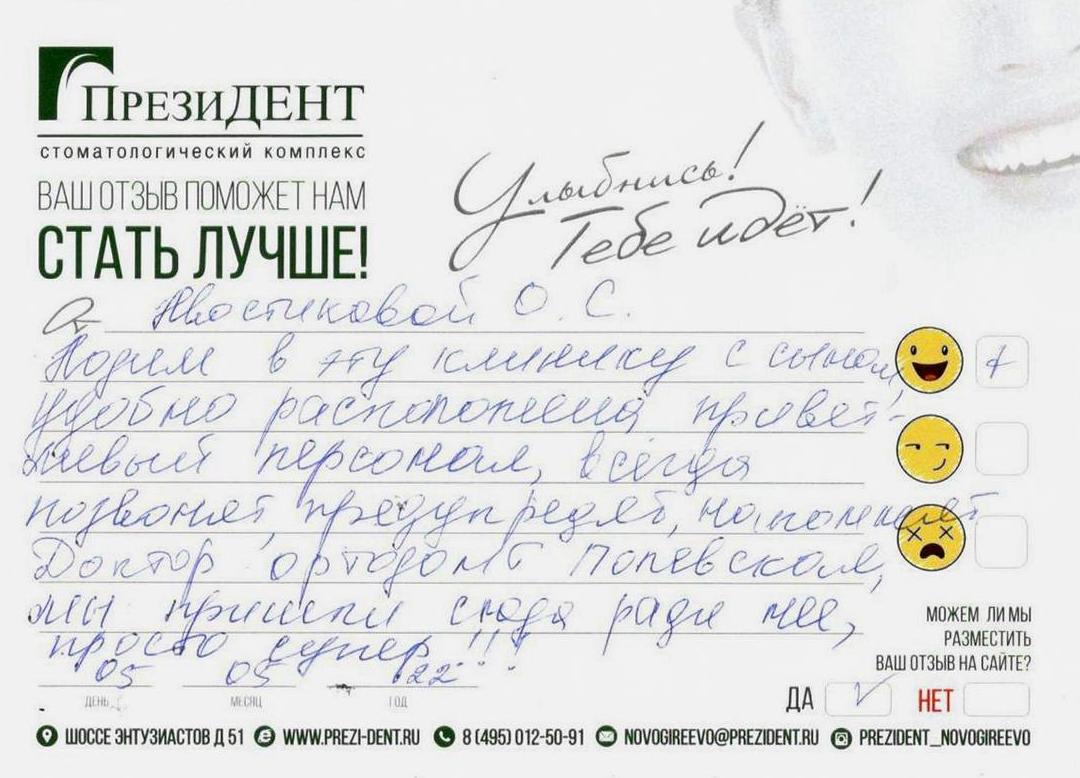 ПРЕЗИДЕНТ
СТОМАТОЛОГИЧЕСКИЙ КОМПЛЕКС
ВАШ ОТЗЫВ ПОМОЖЕТ НАМ
СТАТЬ ЛУЧШЕ!
Улыбнись!
Тебе идёт!
От Хвостиковой О. С.
Ходим в эту клинику с сыном,
удобно расположена, привет-
ливый персонал, всегда
позвонят, предупредят, напомнят
Доктор ортодонт
мы пришли сюда ради нее,
просто супер!!!
05 05 22
ДЕНЬ МЕСЯЦ ГОД
МОЖЕМ ЛИ МЫ
РАЗМЕСТИТЬ
ВАШ ОТЗЫВ НА САЙТЕ?
ДА НЕТ
ШОССЕ ЭНТУЗИАСТОВ Д 51 WWW.PREZI-DENT.RU 8 (495) 012-50-91 NOVOGIREEVO@PREZIDENT.RU PREZIDENT_NOVOGIREEVO